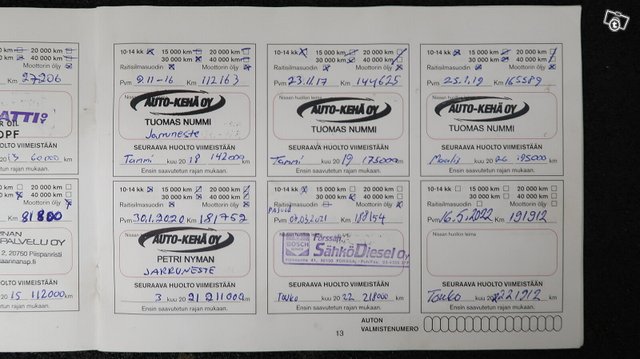 20 000 km
30 000 km
Moottorin öljy
Km 27206
ATTI
R OIL
OPF
HUOLTO VIIMEISTÄÄN
13 60000 km
tun rajan mukaan.
10-14 kk 15 000 km 20 000 km
30 000 km 40 000 km
Raitisilmasuodin Moottorin öljy
Pvm 9.11-16 Km 112163
AUTO-KEHÄ OY
TUOMAS NUMMI
Jarruneste
SEURAAVA HUOLTO VIIMEISTÄÄN
Tammi kuu 20 18 142000 km
Ensin saavutetun rajan mukaan.
10-14 kk 15 000 km 20 000 km
30 000 km 40 000 km
Raitisilmasuodin Moottorin öljy
Pvm 23.11.17 Km 144625
Nissan huollon leima
AUTO-KEHÄ OY
TUOMAS NUMMI
SEURAAVA HUOLTO VIIMEISTÄÄN
Tammi kuu 20 19 175000 km
Ensin saavutetun rajan mukaan.
10-14 kk 15 000 km 20 000 km
30 000 km 40 000 km
Raitisilmasuodin Moottorin öljy
Pvm 25.1.19 Km 165589
Nissan huollon leima
AUTO-KEHÄ OY
TUOMAS NUMMI
SEURAAVA HUOLTO VIIMEISTÄÄN
Maalis kuu 20 20 195000 km
Ensin saavutetun rajan mukaan.
20 000 km
40 000 km
Moottorin öljy
Km 81800
PALVELU OY
2, 20750 Piispanristi
HUOLTO VIIMEISTÄÄN
20 15 112000 km
tun rajan mukaan.
10-14 kk 15 000 km 20 000 km
30 000 km 40 000 km
Raitisilmasuodin Moottorin öljy
Pvm 30.1.2020 Km 181752
AUTO-KEHÄ OY
PETRI NYMAN
JARRUNESTE
SEURAAVA HUOLTO VIIMEISTÄÄN
3 kuu 20 21 211000 km
Ensin saavutetun rajan mukaan.
10-14 kk 15 000 km 20 000 km
30 000 km 40 000 km
Raitisilmasuodin Moottorin öljy
Pvm Km
Forssan
BOSCH
SähköDiesel Oy
SEURAAVA HUOLTO VIIMEISTÄÄN
Touko kuu 20 22 218000 km
Ensin saavutetun rajan mukaan.
10-14 kk 15 000 km 20 000 km
30 000 km 40 000 km
Raitisilmasuodin Moottorin öljy
Pvm 16.5.2022 Km 191912
Nissan huollon leima
SEURAAVA HUOLTO VIIMEISTÄÄN
Touko kuu 20 km
Ensin saavutetun rajan mukaan.
13
AUTON
VALMISTENUMERO